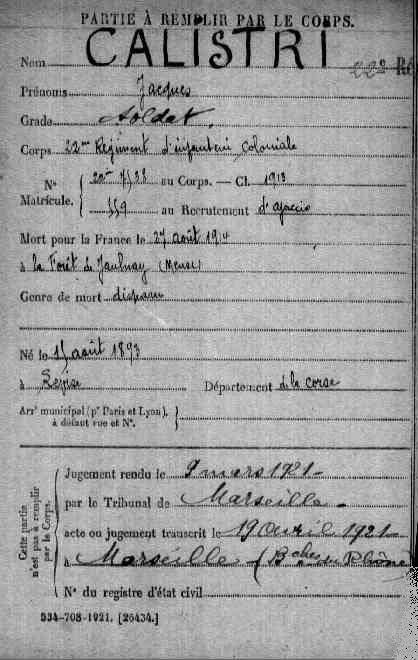 PARTIE À REMPLIR PAR LE CORPS.
Nom CALISTRI 22e R
Prénoms Jacques
Grade Soldat
Corps 22me Régiment d'infanterie coloniale
N° Matricule. au Corps. — Cl. 1913
559 au Recrutement d'ajaccio
Mort pour la France le 27 août 1914
à la Forêt de Jaulnay (Meuse)
Genre de mort disparu
Né le 15 août 1893
à Département de la corse
Arr' municipal (p' Paris et Lyon), à défaut rue et N°.
Cette partie n'est pas à remplir par le Corps.
Jugement rendu le 9 mars 1921
par le Tribunal de Marseille
acte ou jugement transcrit le 19 avril 1921
à Marseille (Bches du Rhône
N° du registre d'état civil
534-708-1921. [26434.]